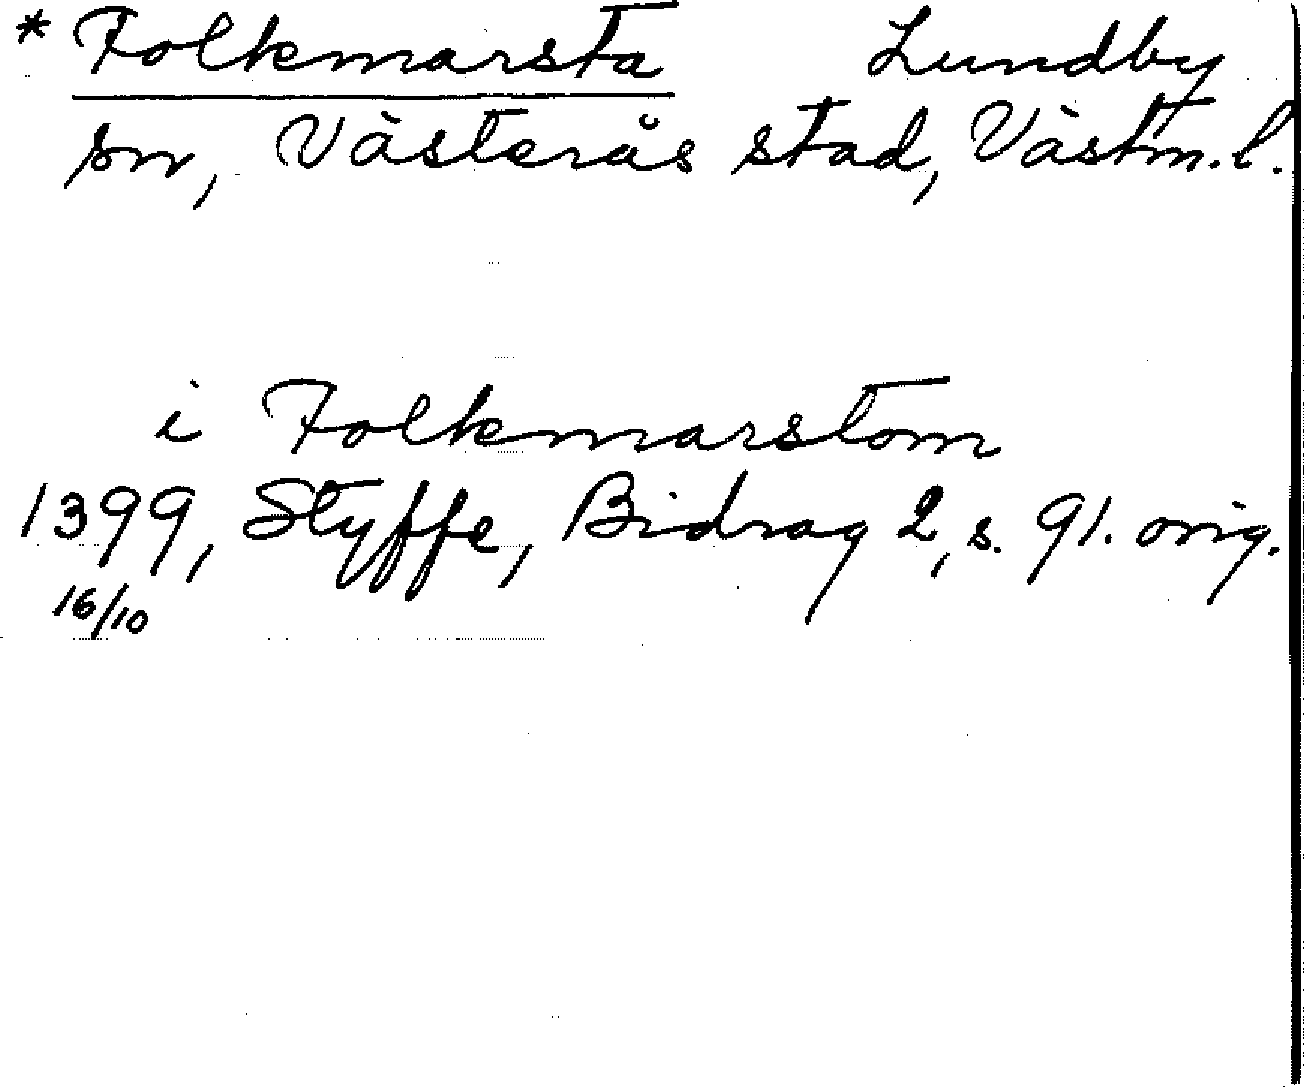 * Folkmarsta Lundby
sn, Västerås stad, Västm. l.
i Folkmarstom
1399, Styffe, Bidrag 2, s. 91. orig.
16/10